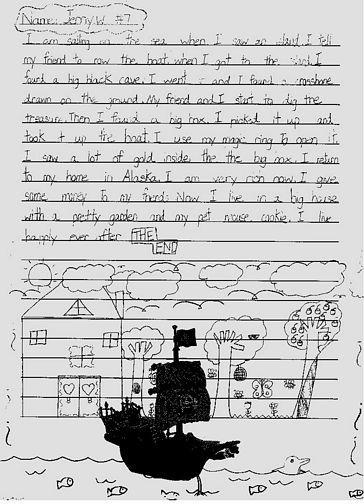 Name: Jenny.W. #7
I am sailing on the sea when I saw an island. I tell
my friend to row the boat. when I got to the island. I
found a big black cave. I went and I found a crossbone
drawn on the ground. My friend and I start to dig the
treasure. Then I found a big box. I picked it up and
took it up the boat. I use my magic ring To open it.
I saw a lot of gold inside the the big box. I return
to my home in Alaska. I am very rich now. I give
some money to my friends. Now I live in a big house
with a pretty garden and my pet mouse, cookie. I live
happily ever after THE
END